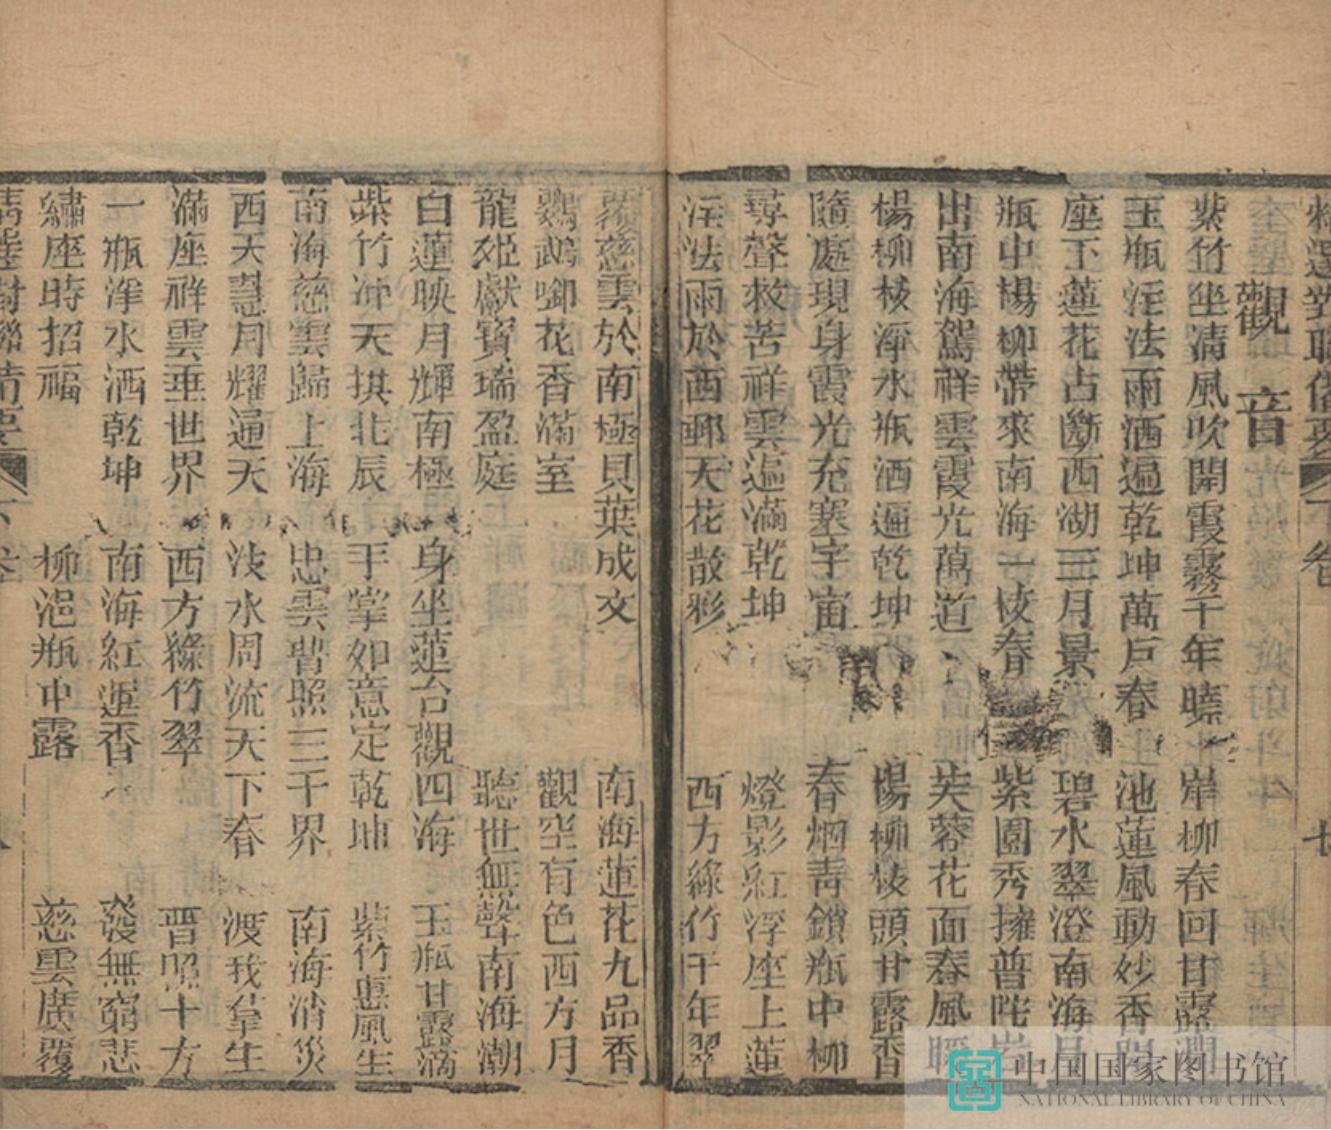 對聯備要 下卷 七
觀音
紫竹坐清風吹開霞霧千年曉 岸柳春回甘露潤
玉瓶注法雨洒遍乾坤萬戶春 池蓮風動妙香
座下蓮花占斷西湖三月景 碧水翠澄南海月
瓶中楊柳帶來南海一枝春 紫園秀擁普陀岩
出南海駕祥雲霞光萬道 芙蓉花面春風
楊柳枝凈水瓶洒遍乾坤 楊柳枝頭甘露香
隨處現身霞光充塞宇宙 春烟靑鎖瓶中柳
尋聲救苦祥雲遍滿乾坤 燈影紅浮座上蓮
注法雨於西郵天花散彩 西方綠竹千年翠
覆慈雲於南極貝葉成文 南海蓮花九品香
鸚鵡啣花香滿室 觀空有色西方月
龍姬獻寶瑞盈庭 聽世無聲南海潮
白蓮映月輝南極 身坐蓮台觀四海 玉瓶甘露滴
紫竹冲天拱北辰 手掌如意定乾坤 紫竹惠風生
南海慈雲歸上海 忠雲普照三千界 南海消災
西天慧月耀通天 法水周流天下春 渡我羣生
滿座祥雲垂世界 西方綠竹翠 普照十方
一瓶凈水洒乾坤 南海紅蓮香 發無窮悲
繡座時招福 柳浥瓶中露 慈雲廣覆
對聯 下卷 八
中国国家图书馆
NATIONAL LIBRARY OF CHINA